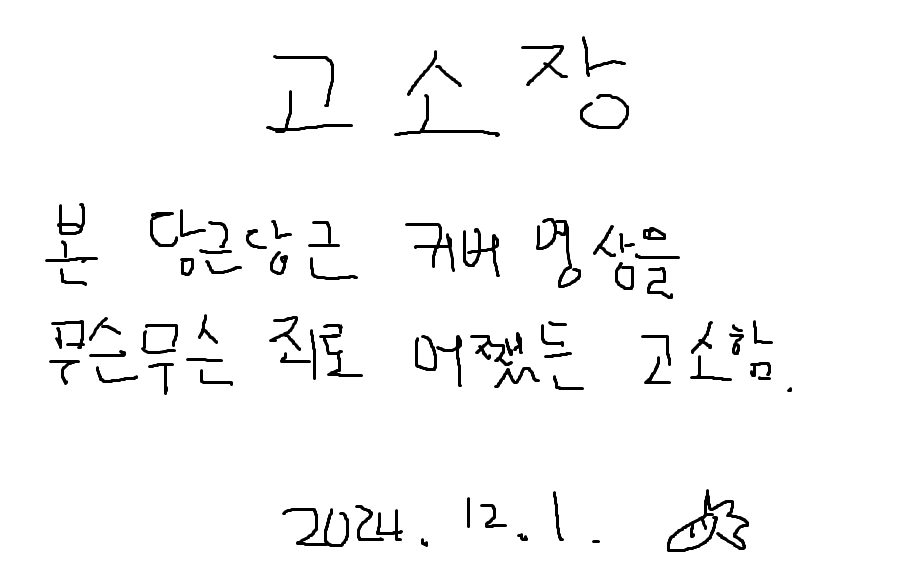 고소장
본 담근당근 커버 영상을
무슨무슨 죄로 어쨌든 고소함.
2024. 12. 1.